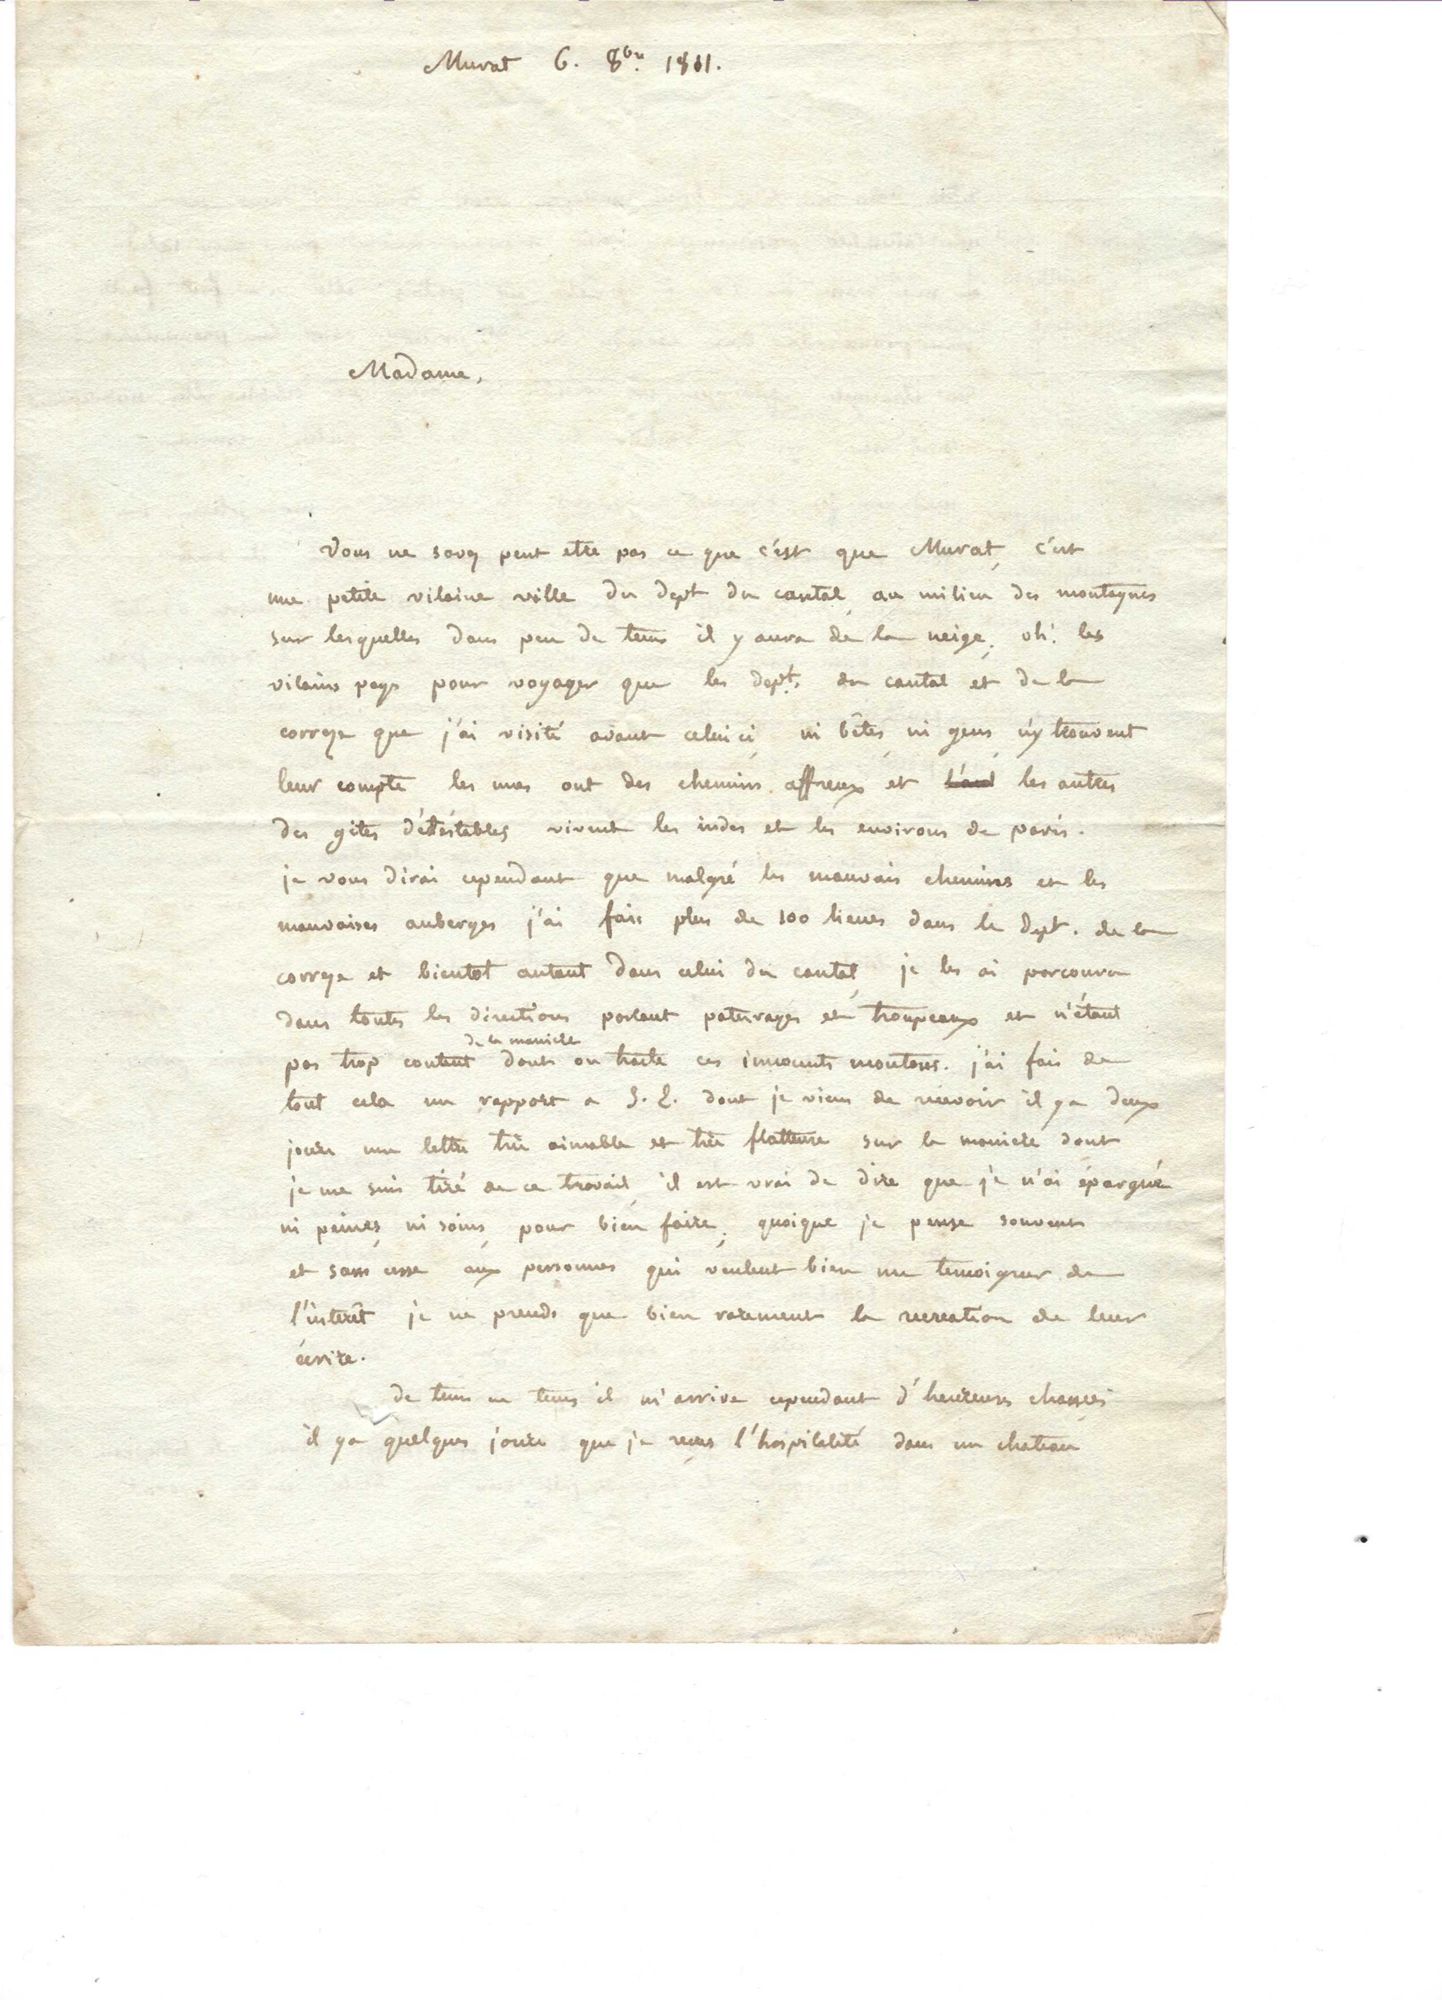 Murat 6. 8bre. 1811.
Madame,
Vous ne savez peut etre pas ce que c'est que Murat, c'est
une petite vilaine ville du dept du cantal, au milieu des montagnes
sur lesquelles dans peu de tems il y aura de la neige, oh! les
vilains pays pour voyager que les depts. du cantal et de la
correze que j'ai visité avant celui ci, ni bêtes, ni gens, n'y trouvent
leur compte les unes ont des chemins affreux et les autres
des gites détéstables vivent les indes et les environs de paris.
je vous dirai cependant que malgré les mauvais chemins et les
mauvaises auberges j'ai fais plus de 100 lieues dans le dept. de la
correze et bientot autant dans celui du cantal, je les ai parcouru
dans toutes les directions paturages et troupeaux et n'étant
de la maniere
pas trop content dont on traite ces innocents moutons. j'ai fais de
tout cela un rapport a S. E. dont je viens de recevoir il y a deux
jours une lettre très aimable et très flatteuse sur la maniere dont
je me suis tiré de ce travail, il est vrai de dire que je n'ai épargné
ni peines, ni soins, pour bien faire, quoique je pense souvent
et sans cesse aux personnes qui veulent bien me temoigner de
l'intérêt je ne prends que bien rarement la recreation de leur
écrire.
de tems en tems il m'arrive cependant d'heureuses chances
il y a quelques jours que je reçus l'hospitalité dans un chateau